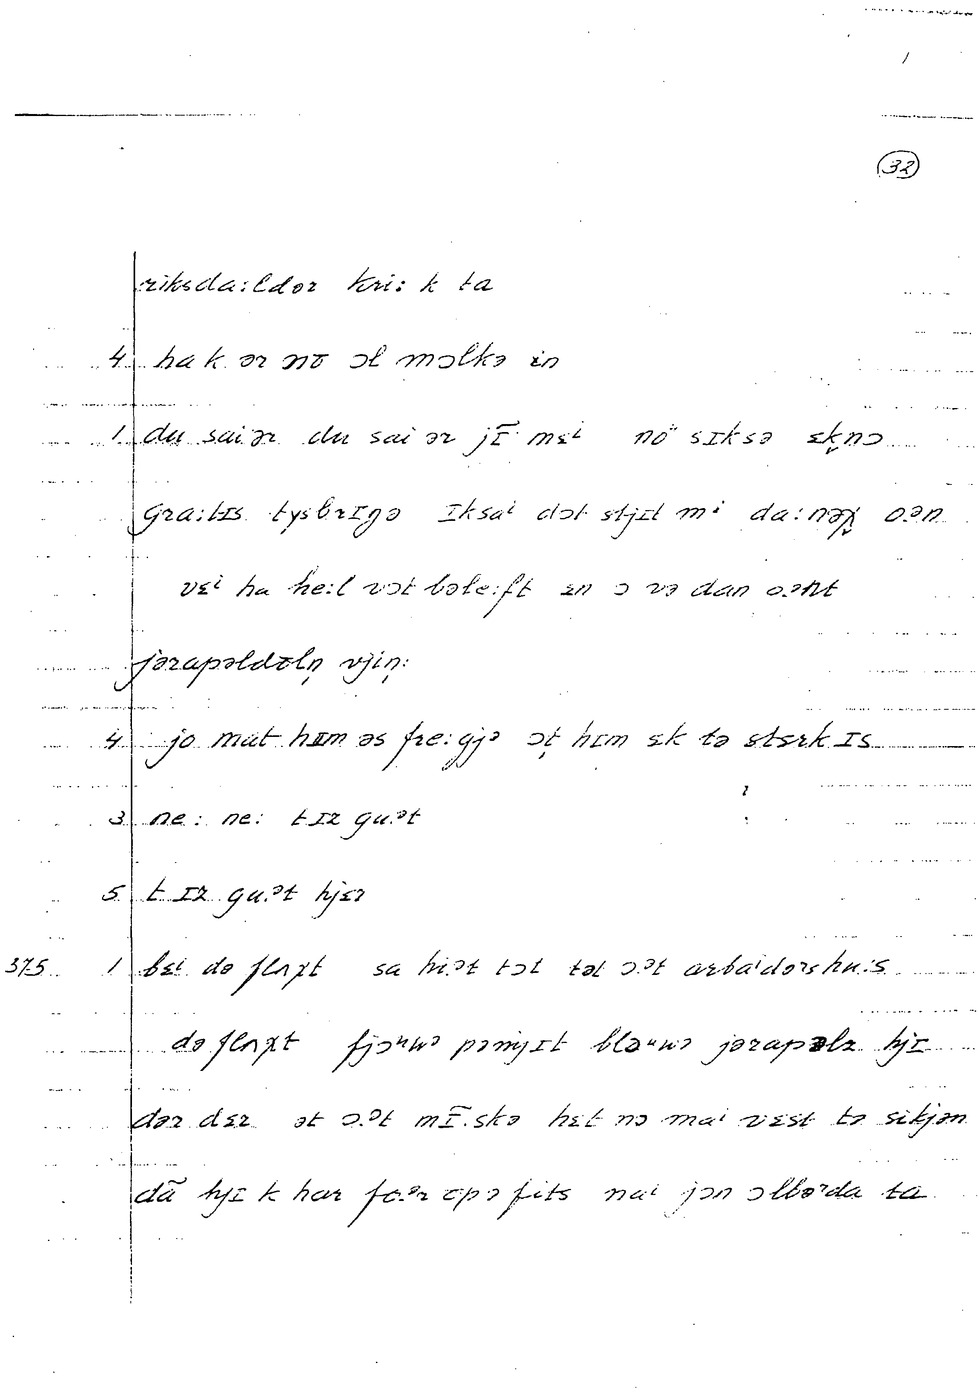 32
riksda:ldər kri: k ta
4 ha k ər nɪz ɔl mɔlkə in
1 du saiər du sai ər jɪ̄ mɛⁱ nö sɪksə ɛk̬nɔ
gra:tɪs tysbrɪgə ɪksaⁱ dɔt stjɪl mⁱ da:nəχ̬ o.ən
vɛⁱ ha he:l vɔt bəle:ft ɛn ɔ və dan o.ənt
jərapəldɪzln̩ vjin̩:
4 jo mat hɪm əs fre:gjə ɔt̩ hɪm ɛk tə stɛrk ɪs
3 ne: ne: t ɪz gu.ət
5 t ɪz gu.ət hjɛr
375 1 bɛⁱ də flʌχt sa hiət tɔt təl ɔ.ət arbaⁱdərshu:s
də flʌχt fjəᵘwə pəmjɪt bləᵘwə jərapəlz hjɪ
dər dɛr ət ɔ.ət mɪ̄.skə hɛt nɔ maⁱ vɛst tə sikjən
dã hjɪ k har fo.ər ɪpə fits naⁱ jən ɔlbərda ta